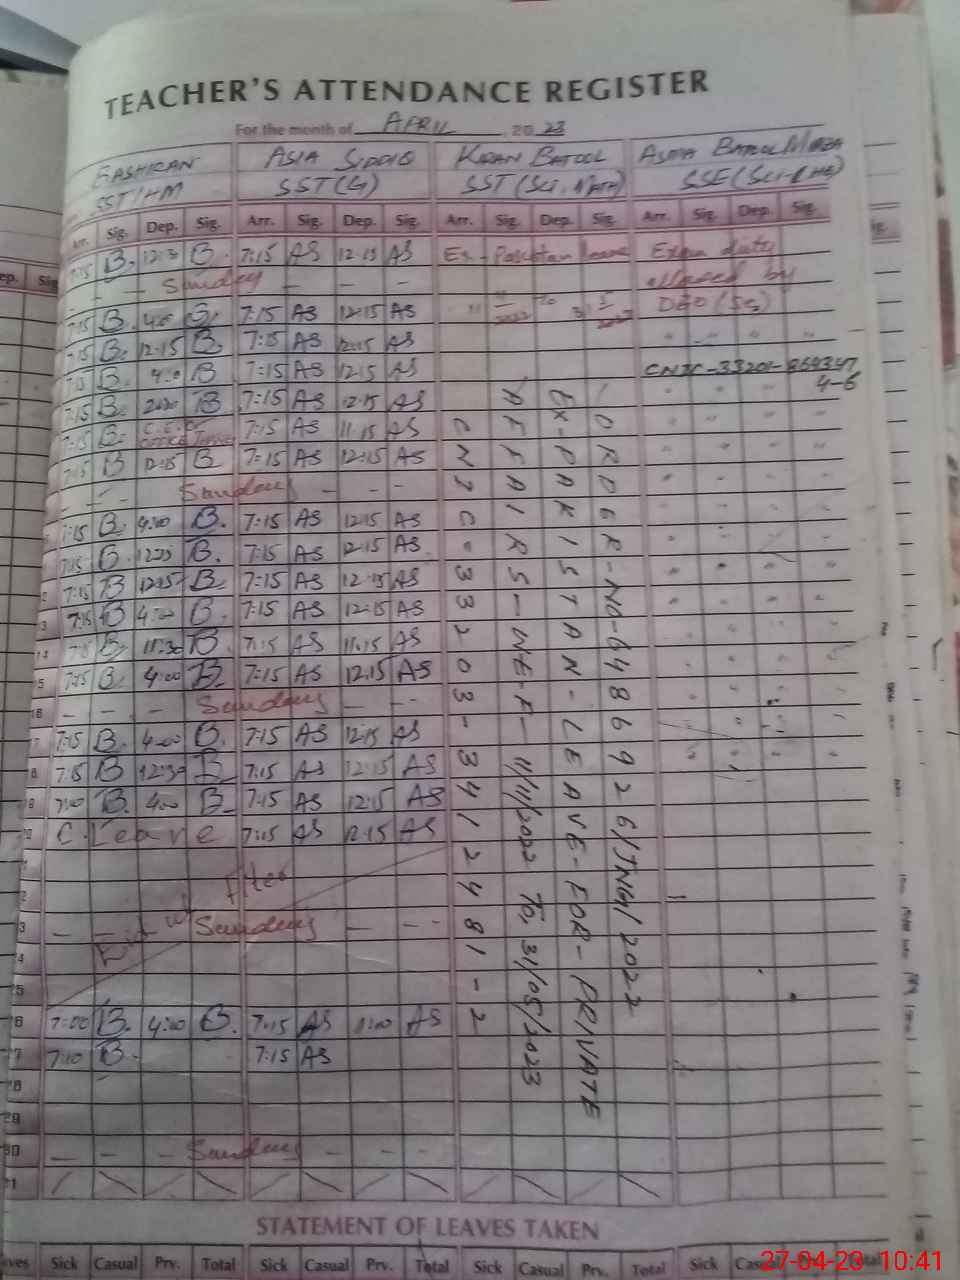 TEACHER'S ATTENDANCE REGISTER
For the month of APRIL, 2023
BASHIRAN ASIA SIDDIQ KIRAN BATOOL ASMA BATOOL
SST/HM SST(G) SST(Sci. Math) SSE(Sci
Arr. Sig. Dep. Sig. Arr. Sig. Dep. Sig. Arr. Sig. Dep. Sig. Arr. Sig. Dep. Sig.
7:15 B. 12:30 B. 7:15 AS 12:15 AS Ex-Pakistan leave Exam duty
Sunday allowed by
7:15 B. B. 7:15 AS 12:15 AS DEO (SE)
7:15 B. 12:15 B. 7:15 AS 12:15 AS
7:15 B. B 7:15 AS 12:15 AS
7:15 B. B 7:15 AS 12:15 AS
7:15 B. 7:15 AS 11:15 AS
7:15 B 12:15 B 7:15 AS 12:15 AS
Sunday
7:15 B. 4:00 B. 7:15 AS 12:15 AS
7:15 B. B. 7:15 AS 12:15 AS
7:15 B 12:15 B 7:15 AS 12:15 AS
7:15 B 4:00 B. 7:15 AS 12:15 AS
14 7:15 B. 11:30 B. 7:15 AS 11:15 AS
15 7:15 B. 4:00 B. 7:15 AS 12:15 AS
16 Sunday
7:15 B. 4:00 B. 7:15 AS 12:15 AS
7:15 B 12:30 B 7:15 AS 12:15 AS
7:00 B. 4:00 B 7:15 AS 12:15 AS
C. Leave 7:15 AS 12:15 AS
Eid ul Fiter
Sunday
7:00 B. 4:00 B. 7:15 AS 11:00 AS
7:10 B. 7:15 AS
28
29
30 Sunday
31
ORDER-NO-6486926/JNG/2022
EX-PAKISTAN-LEAVE-FOR-PRIVATE
AFFAIRS-W-E-F-11/11/2022 TO 31/05/2023
CNIC 33203-3412481-2
STATEMENT OF LEAVES TAKEN
Sick Casual Prv. Total Sick Casual Prv. Total Sick Casual Prv. Total Sick
27-04-23 10:41